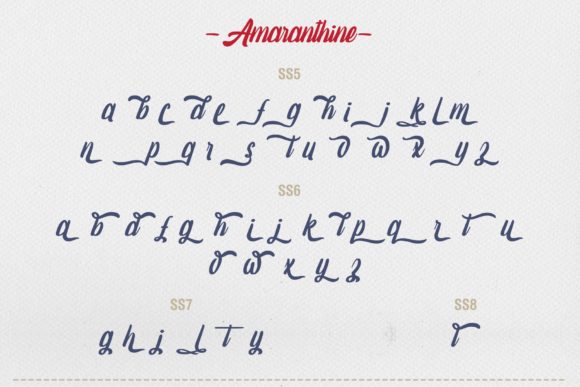 - Amaranthine -
SS5
a b c d e f g h i j k l m
n p q r s t u v w x y z
SS6
a b d f g h i j k l p q r t u
v w x y z
SS7 SS8
g h j l t y t